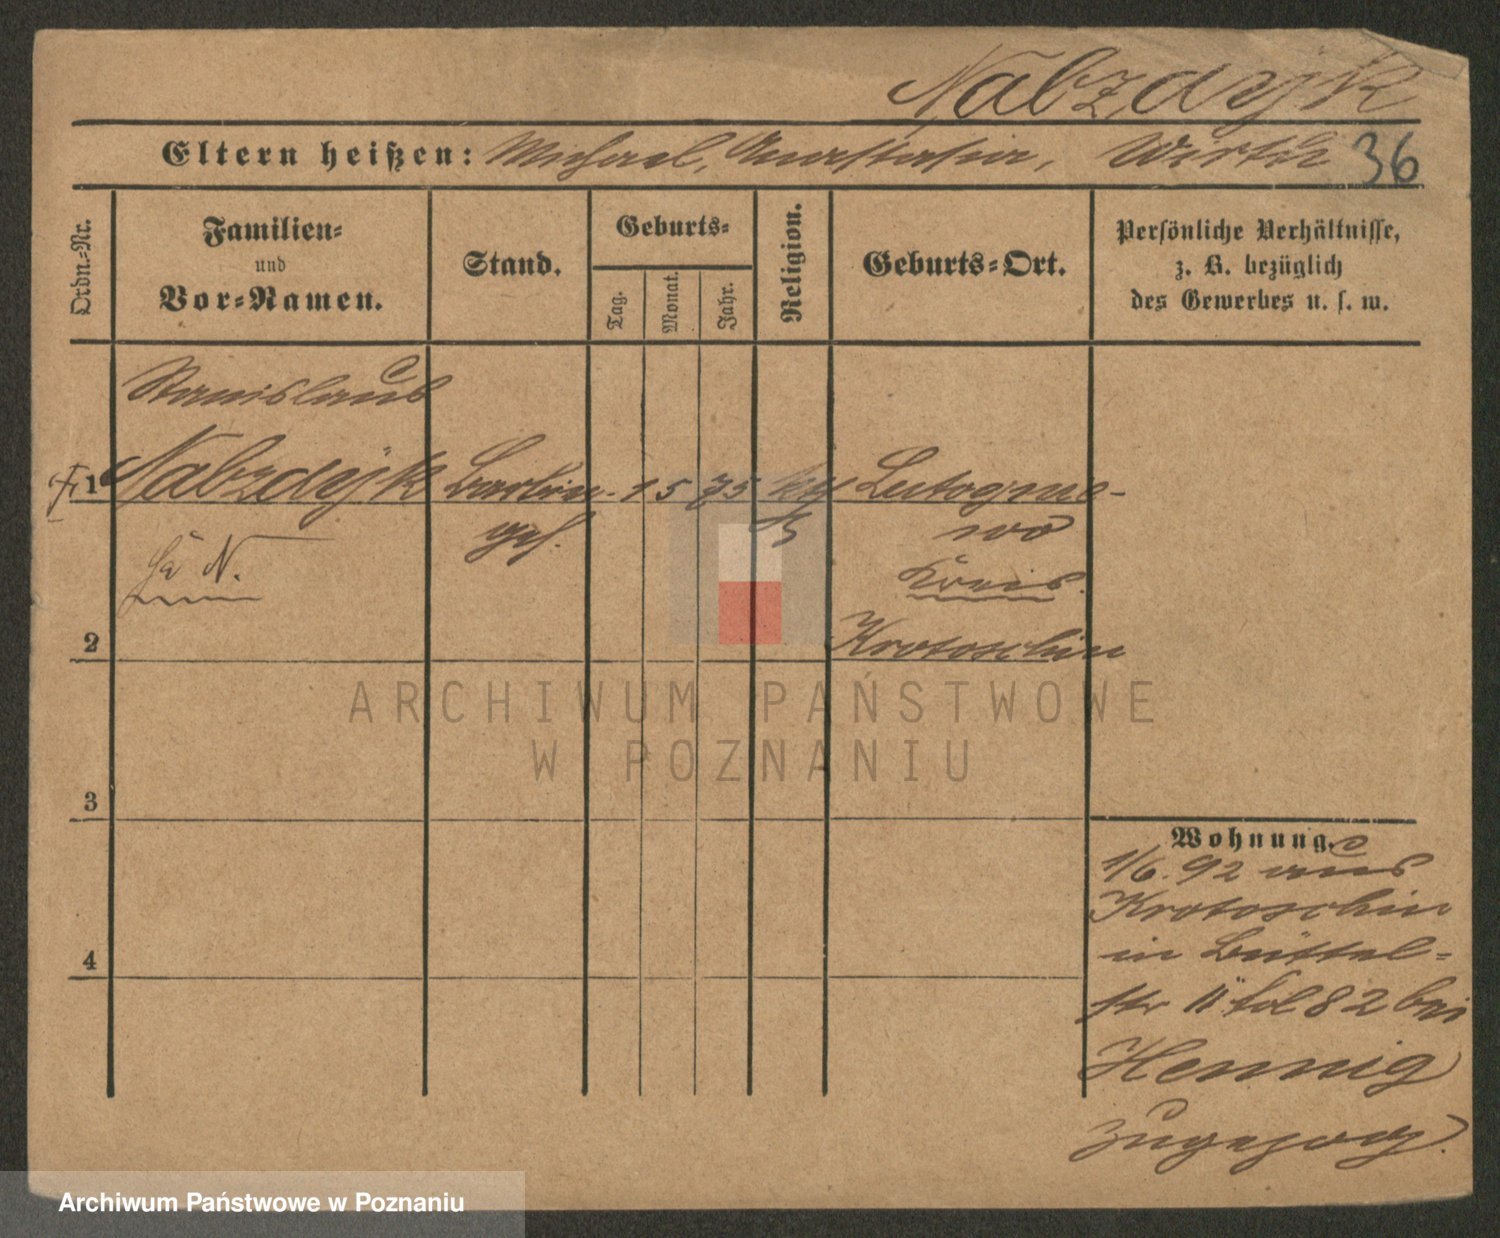 Nabzdyjk
Eltern heißen: Michael, Anastasia, Wirth 36
Ordn.-Nr.
Familien-
und
Vor-Namen.
Stand.
Geburts-
Tag.
Monat.
Jahr.
Religion.
Geburts-Ort.
Persönliche Verhältnisse,
z. B. bezüglich
des Gewerbes u. s. w.
Stanislaus
1 Nabzdyjk Barbier- 1 5 75 kth Lutogne-
geh. wo
N. Kreis
2 Krotoschin
3
4
Wohnung.
1/6. 92 aus
Krotoschin
in Büttel-
str 11 fol 82 bei
Hennig
zugezog.
ARCHIWUM PAŃSTWOWE
W POZNANIU
Archiwum Państwowe w Poznaniu